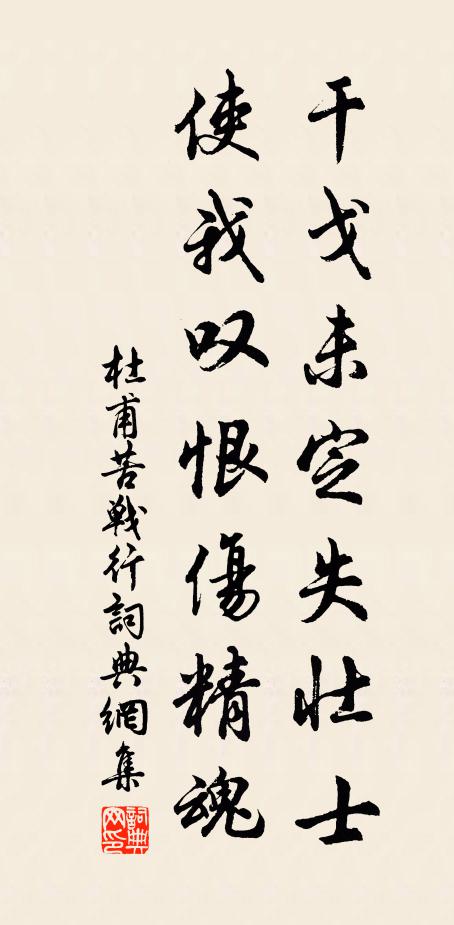 干戈未定失壮士
使我叹恨傷精魂
杜甫苦戰行詞典網集
詞典网印